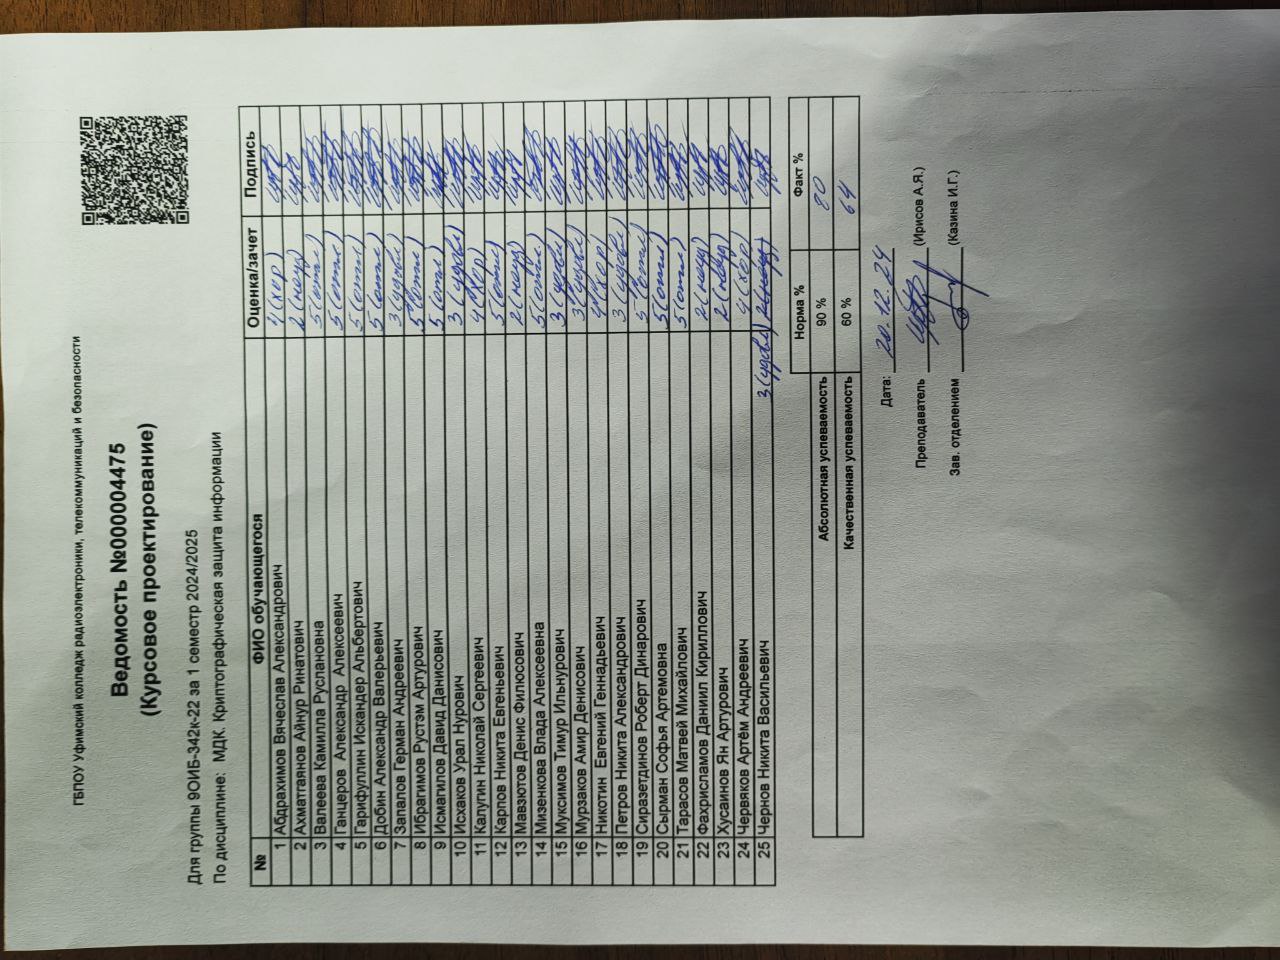 ГБПОУ Уфимский колледж радиоэлектроники, телекоммуникаций и безопасности
Ведомость №000004475
(Курсовое проектирование)
Для группы 9ОИБ-342к-22 за 1 семестр 2024/2025
По дисциплине: МДК. Криптографическая защита информации
№ ФИО обучающегося Оценка/зачет Подпись
1 Абдрахимов Вячеслав Александрович 4 (хор)
2 Ахматгаянов Айнур Ринатович 2 (неуд)
3 Валеева Камилла Руслановна 5 (отл)
4 Ганцеров Александр Алексеевич 5 (отл)
5 Гарифуллин Искандер Альбертович 5 (отл)
6 Добин Александр Валерьевич 5 (отл)
7 Запалов Герман Андреевич 3 (удовл)
8 Ибрагимов Рустэм Артурович 5 (отл)
9 Исмагилов Давид Данисович 5 (отл)
10 Исхаков Урал Нурович 3 (удовл)
11 Капугин Николай Сергеевич 4 (хор)
12 Карпов Никита Евгеньевич 5 (отл)
13 Мавзютов Денис Филюсович 2 (неуд)
14 Мизенкова Влада Алексеевна 5 (отл.)
15 Муксимов Тимур Ильнурович 3 (удовл)
16 Мурзаков Амир Денисович 3 (удовл)
17 Никотин Евгений Геннадьевич 4 (хор)
18 Петров Никита Александрович 3 (удовл)
19 Сиразетдинов Роберт Динарович 5 (отл)
20 Сырман Софья Артемовна 5 (отл)
21 Тарасов Матвей Михайлович 5 (отл)
22 Фахрисламов Даниил Кириллович 2 (неуд)
23 Хусаинов Ян Артурович 2 (неуд)
24 Червяков Артём Андреевич 4 (хор)
25 Чернов Никита Васильевич 3 (удовл) 2 (неуд)
Норма % Факт %
Абсолютная успеваемость 90 % 80
Качественная успеваемость 60 % 64
Дата: 20.12.24
Преподаватель (Ирисов А.Я.)
Зав. отделением (Казина И.Г.)